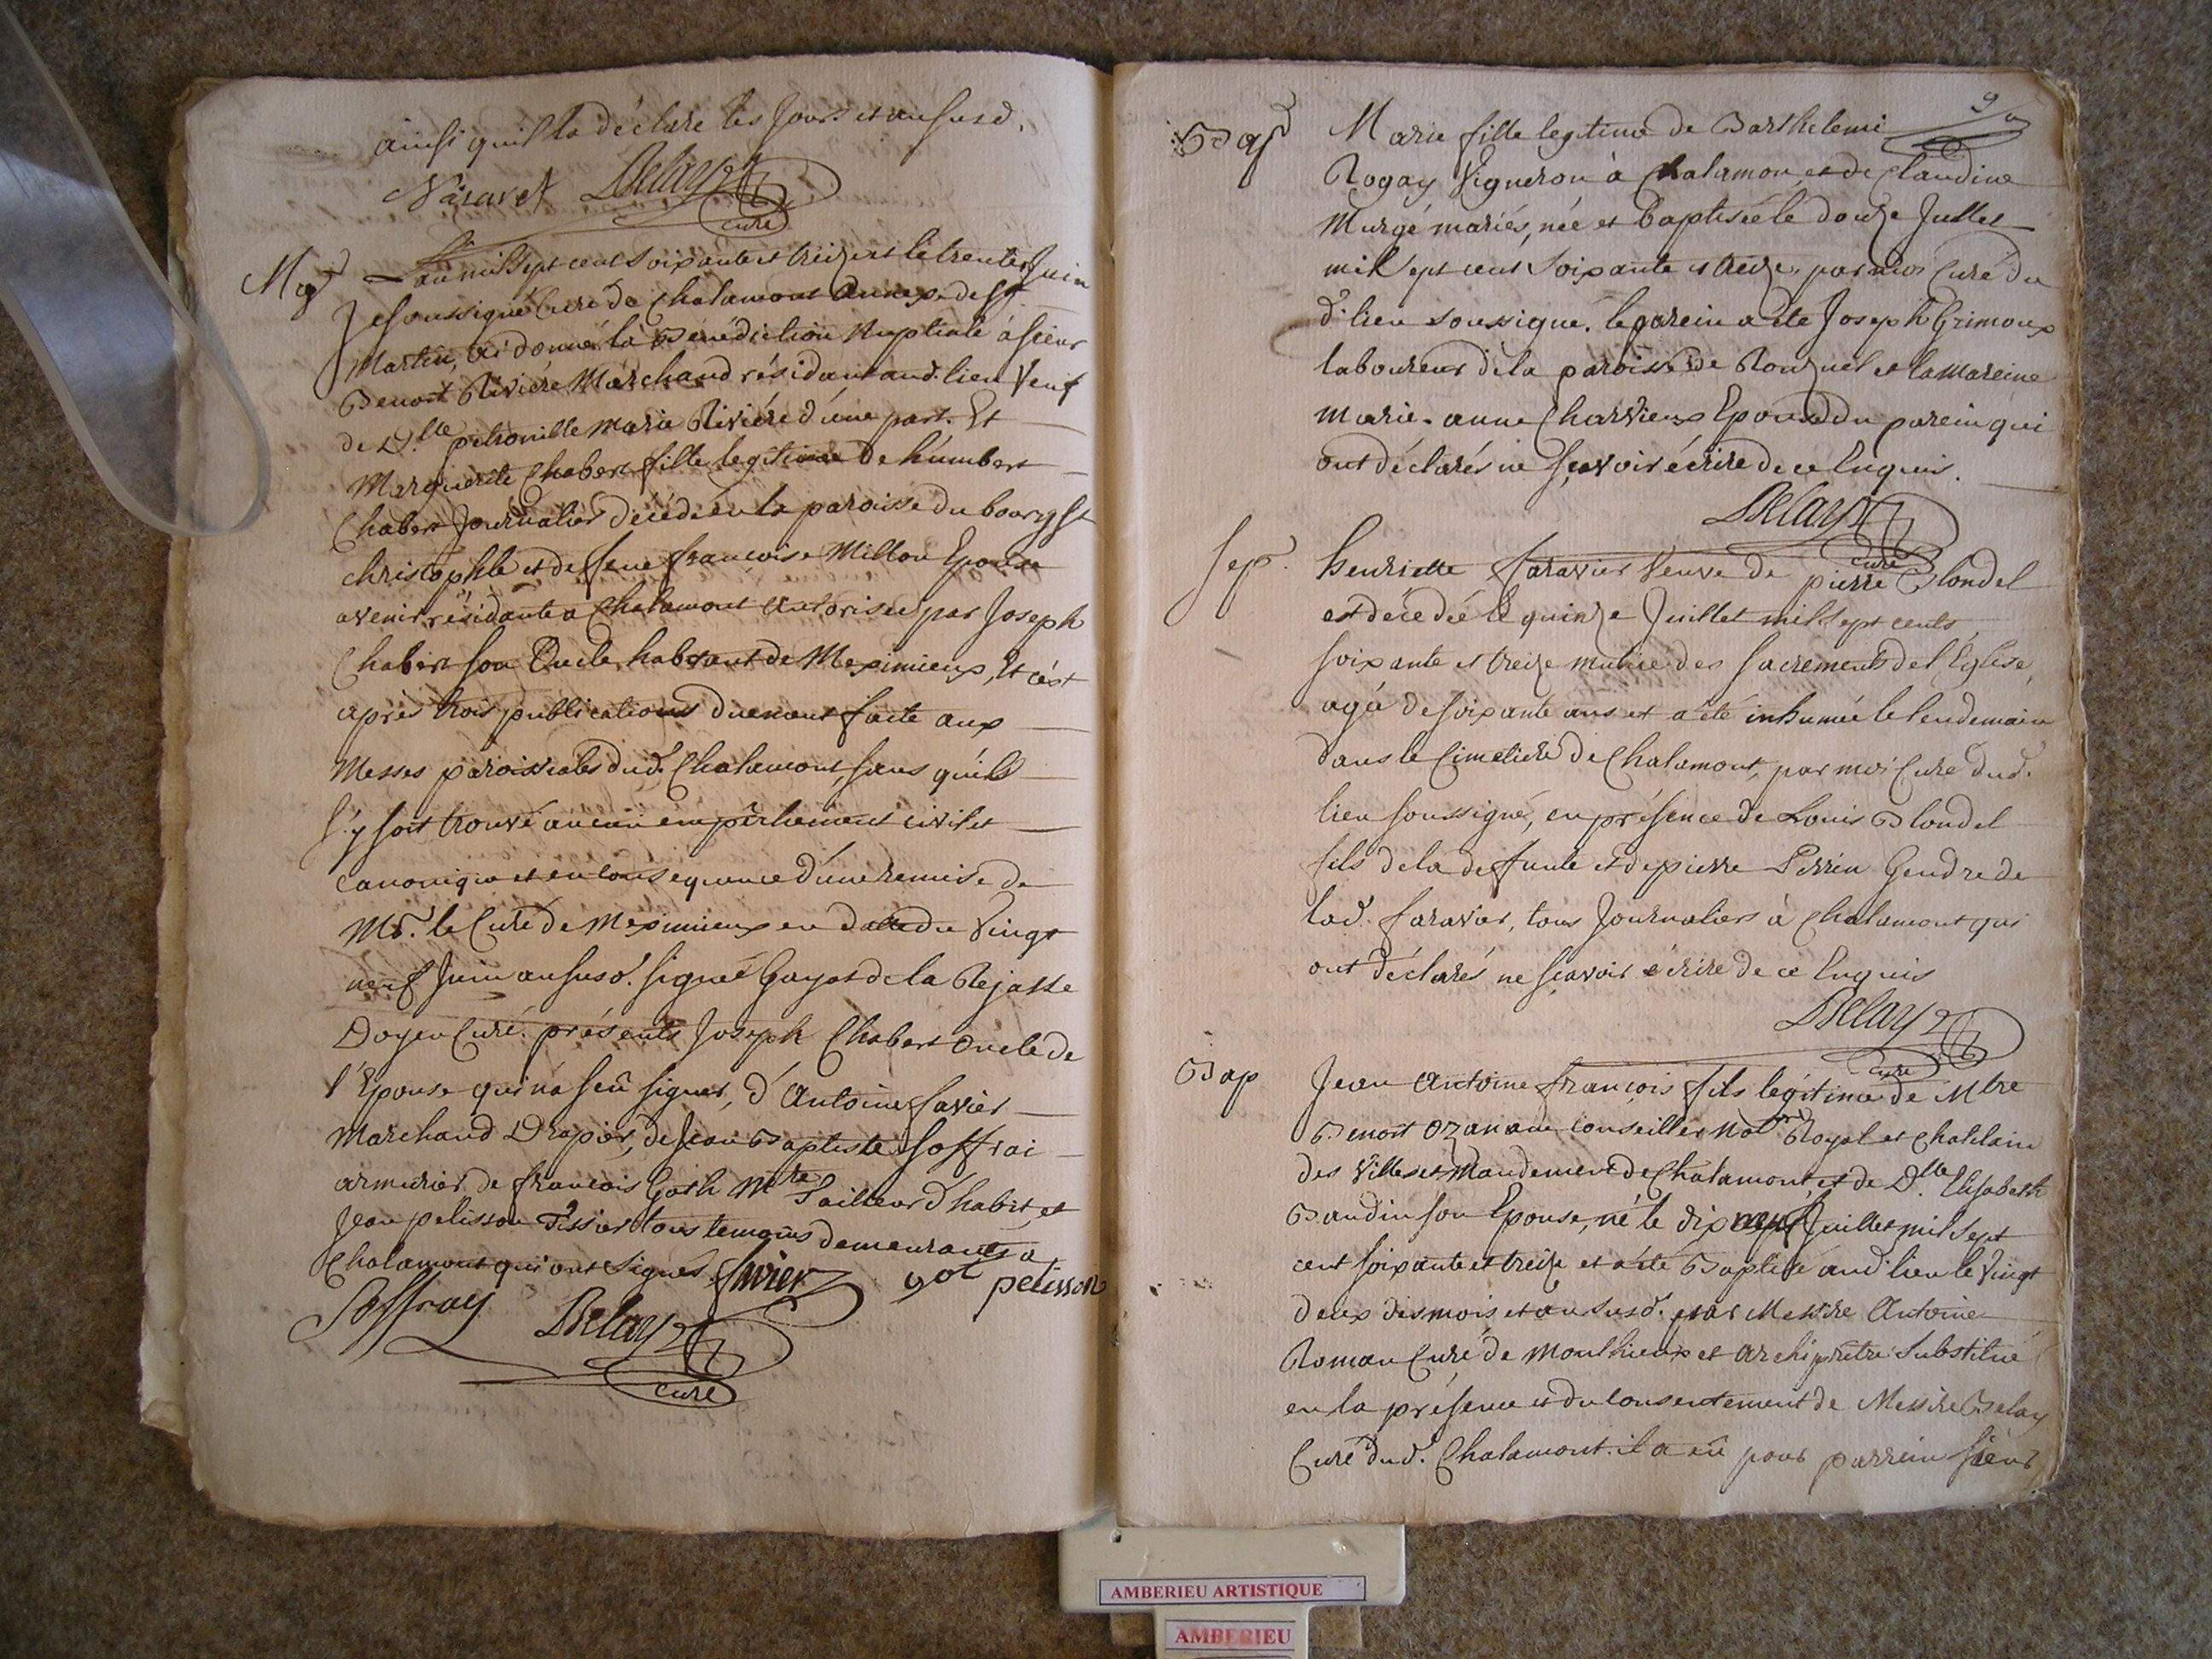 ainsi quil la déclare les Jours et an susd.
Nazaret Delay
curé
Mag L'an mil sept cent soixante et treize et le trente Juin
Je soussigné Curé de Chalamont annexe de St
Martin, ai donné la Bénédiction Nuptiale à sieur
Benoit Riviére Marchand résidant aud. lieu Veuf
de Dlle petronille Marie Riviére d'une part. Et
Marguerite Chabert fille legitime de humbert
Chabert Journalier décédé en la paroisse du bourg St
christophle et de feue françoise Millon Epouse
avenir résidante a Chalamont autorisée par Joseph
Chabert son Oncle habitant de Meximieux, Et c'est
après trois publications duement faite aux
Messes paroissiales dud. Chalamont, sans quils
s'y soit trouvé aucun empêchement civil et
canonique et en consequence d'une remise de
Mr. le Curé de Meximieux en datte du Vingt
neuf Juin an susd. signé Gayot de la Rejasse
Doyen Curé. présents Joseph Chabert Oncle de
l'Epouse qui n'a sçû signer, d'Antoine favier
Marchand Drapier, de Jean Baptiste Soffrai
armurier de françois Goth Mtre Tailleur d'habit, et
Jean pelisson Tissier tous temoins demeurants a
Chalamont qui ont signés. favier got pelisson
Soffray Delay
curé
9
Bap Marie fille legitime de Barthelemi
Rogay Vigneron à Chalamon, et de Claudine
Murgé mariés, née et baptisée le douze Juillet
mil sept cent soixante et treize, par moi Curé du
d. lieu soussigné. le parein a été Joseph Grimoux
laboureur de la paroisse de Ronzuel et la mareine
marie-anne Charvieux Epouse du parein qui
ont déclarés ne sçavoir écrire de ce Enquis.
Delay
curé
Sep. henriette faravier Veuve de pierre Blondel
est décedée le quinze Juillet mil sept cents
soixante et treize munie des sacrements de l'Eglise,
agée de soixante ans et a été inhumée le lendemain
dans le Cimetiere de Chalamont, par moi Curé dud.
lieu soussigné, en présence de Louis Blondel
fils de la defunte et de pierre Perrin Gendre de
lad. faravier, tous Journaliers à Chalamont qui
ont déclarés ne sçavoir écrire de ce Enquis
Delay
curé
Bap Jean Antoine françois fils legitime de Mtre
Benoit Ozanam conseiller Notre Royal et Chatelain
des Ville et Mandement de Chalamont et de Dlle Elisabeth
Baudin son Epouse, né le dix neuf Juillet mil sept
cent soixante et treize et a été Baptisé aud. lieu le Vingt
deux des mois et an susd. par Messire Antoine
Roman Curé de Monthieux et archiprêtre substitué
en la présence et du consentement de Messire Delay
Curé dud. Chalamont. il a eû pour parrein sieur
AMBERIEU ARTISTIQUE
AMBERIEU